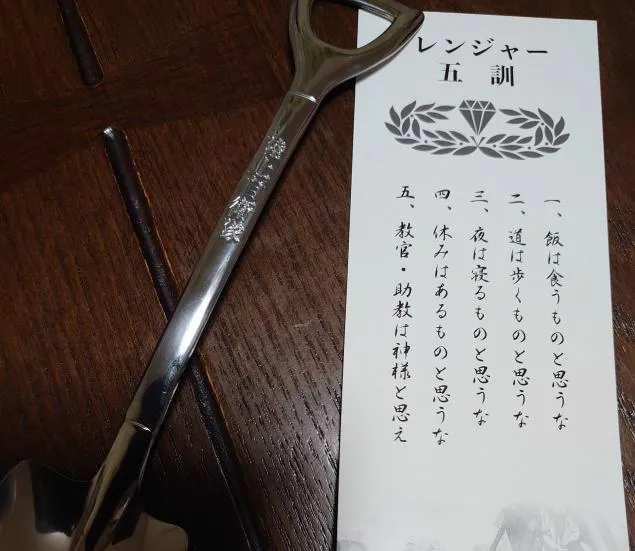 レンジャー
五 訓
一、飯は食うものと思うな
二、道は歩くものと思うな
三、夜は寝るものと思うな
四、休みはあるものと思うな
五、教官・助教は神様と思え
陸上自衛隊